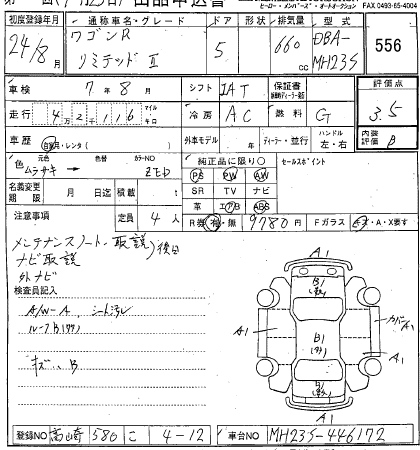 ヒーロー・メンバーズ・オートオークション FAX 0493-65-4004
初度登録年月 通称車名・グレード ドア 形状 排気量 型式
24/8月 ワゴンR リミテッドⅡ 5 660 DBA-MH23S 556
車検 7年8月 シフト IAT 保証書 評価点
走行 42116 マイル キロ 冷房 AC 燃料 G 3.5
車歴 自家用・レンタ 外車モデル 年 ディーラー・並行 ハンドル 左・右 内装評価 B
色 元色 ムラサキ → カラーNO ZED 純正品に限り○ セールスポイント
PS PW
名義変更期限 月 日迄 積載 SR TV ナビ
革 エアB ABS
注意事項 定員 4人 R券 有・無 9780円 Fガラス A・X要す
メンテナンスノート・取説 後日
ナビ取説
外ナビ
検査員記入
A/W-A、シート汚レ
ルーフB
キズ、B
A1
B1
A1
A1
B1
B1
A1
登録NO 高崎 580 こ 4-12 車台NO MH23S-446172